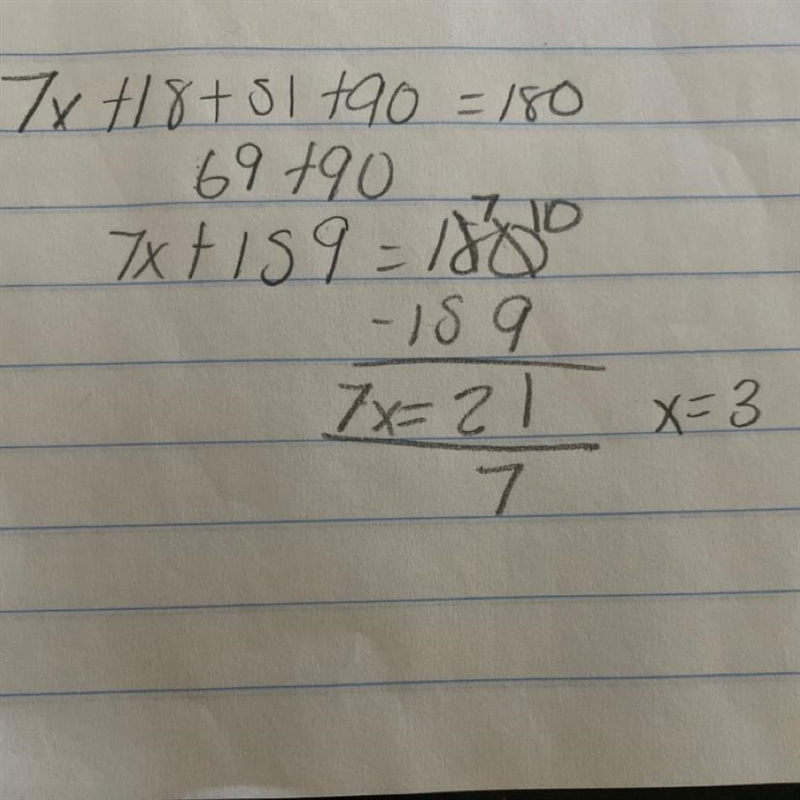 7x+18+51+90=180
69+90
7x+159=180 7 10
-159
7x=21 x=3
7